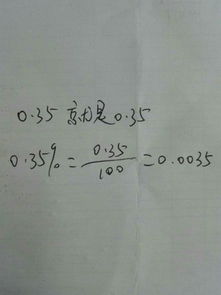 0.35 就是 0.35
0.35% = 0.35/100 = 0.0035